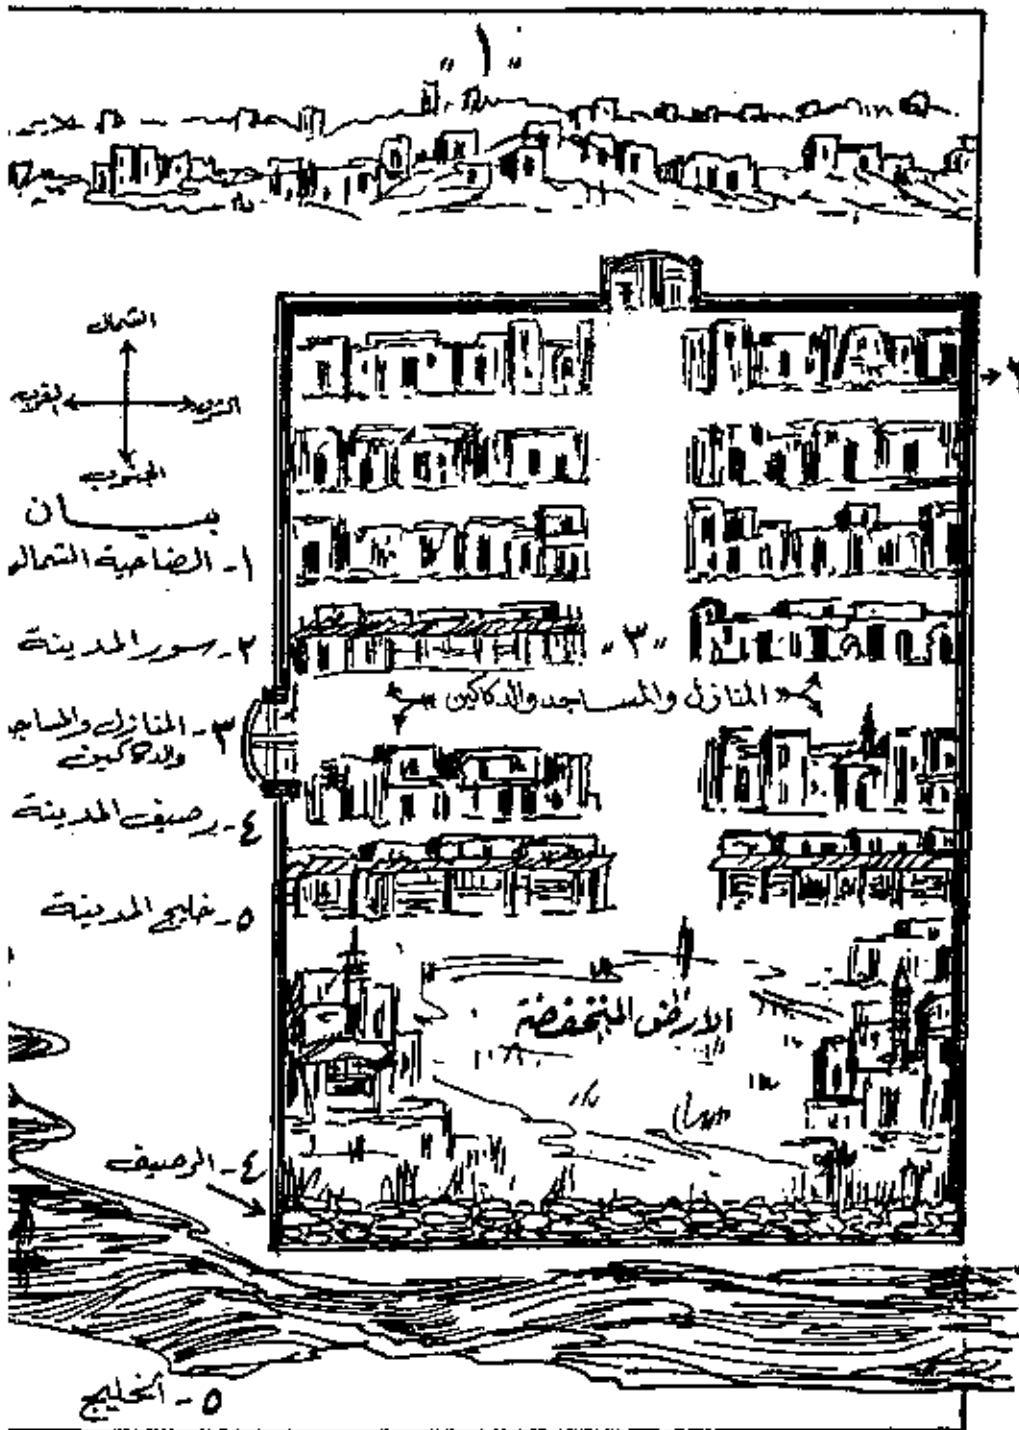 „ ١ „
الشمال
الغرب
الشرق
الجنوب
بيــــان
١ـ الضاحية الشمالـ
٢ـ سور المدينة
٣ـ المنازل والمساجـ
والدكاكين
٤ـ رصيف المدينة
٥ـ خليج المدينة
٢
„٣„
المنازل والمساجد والدكاكين
الارض المنخفضة
٤ـ الرصيف
٥ـ الخليج